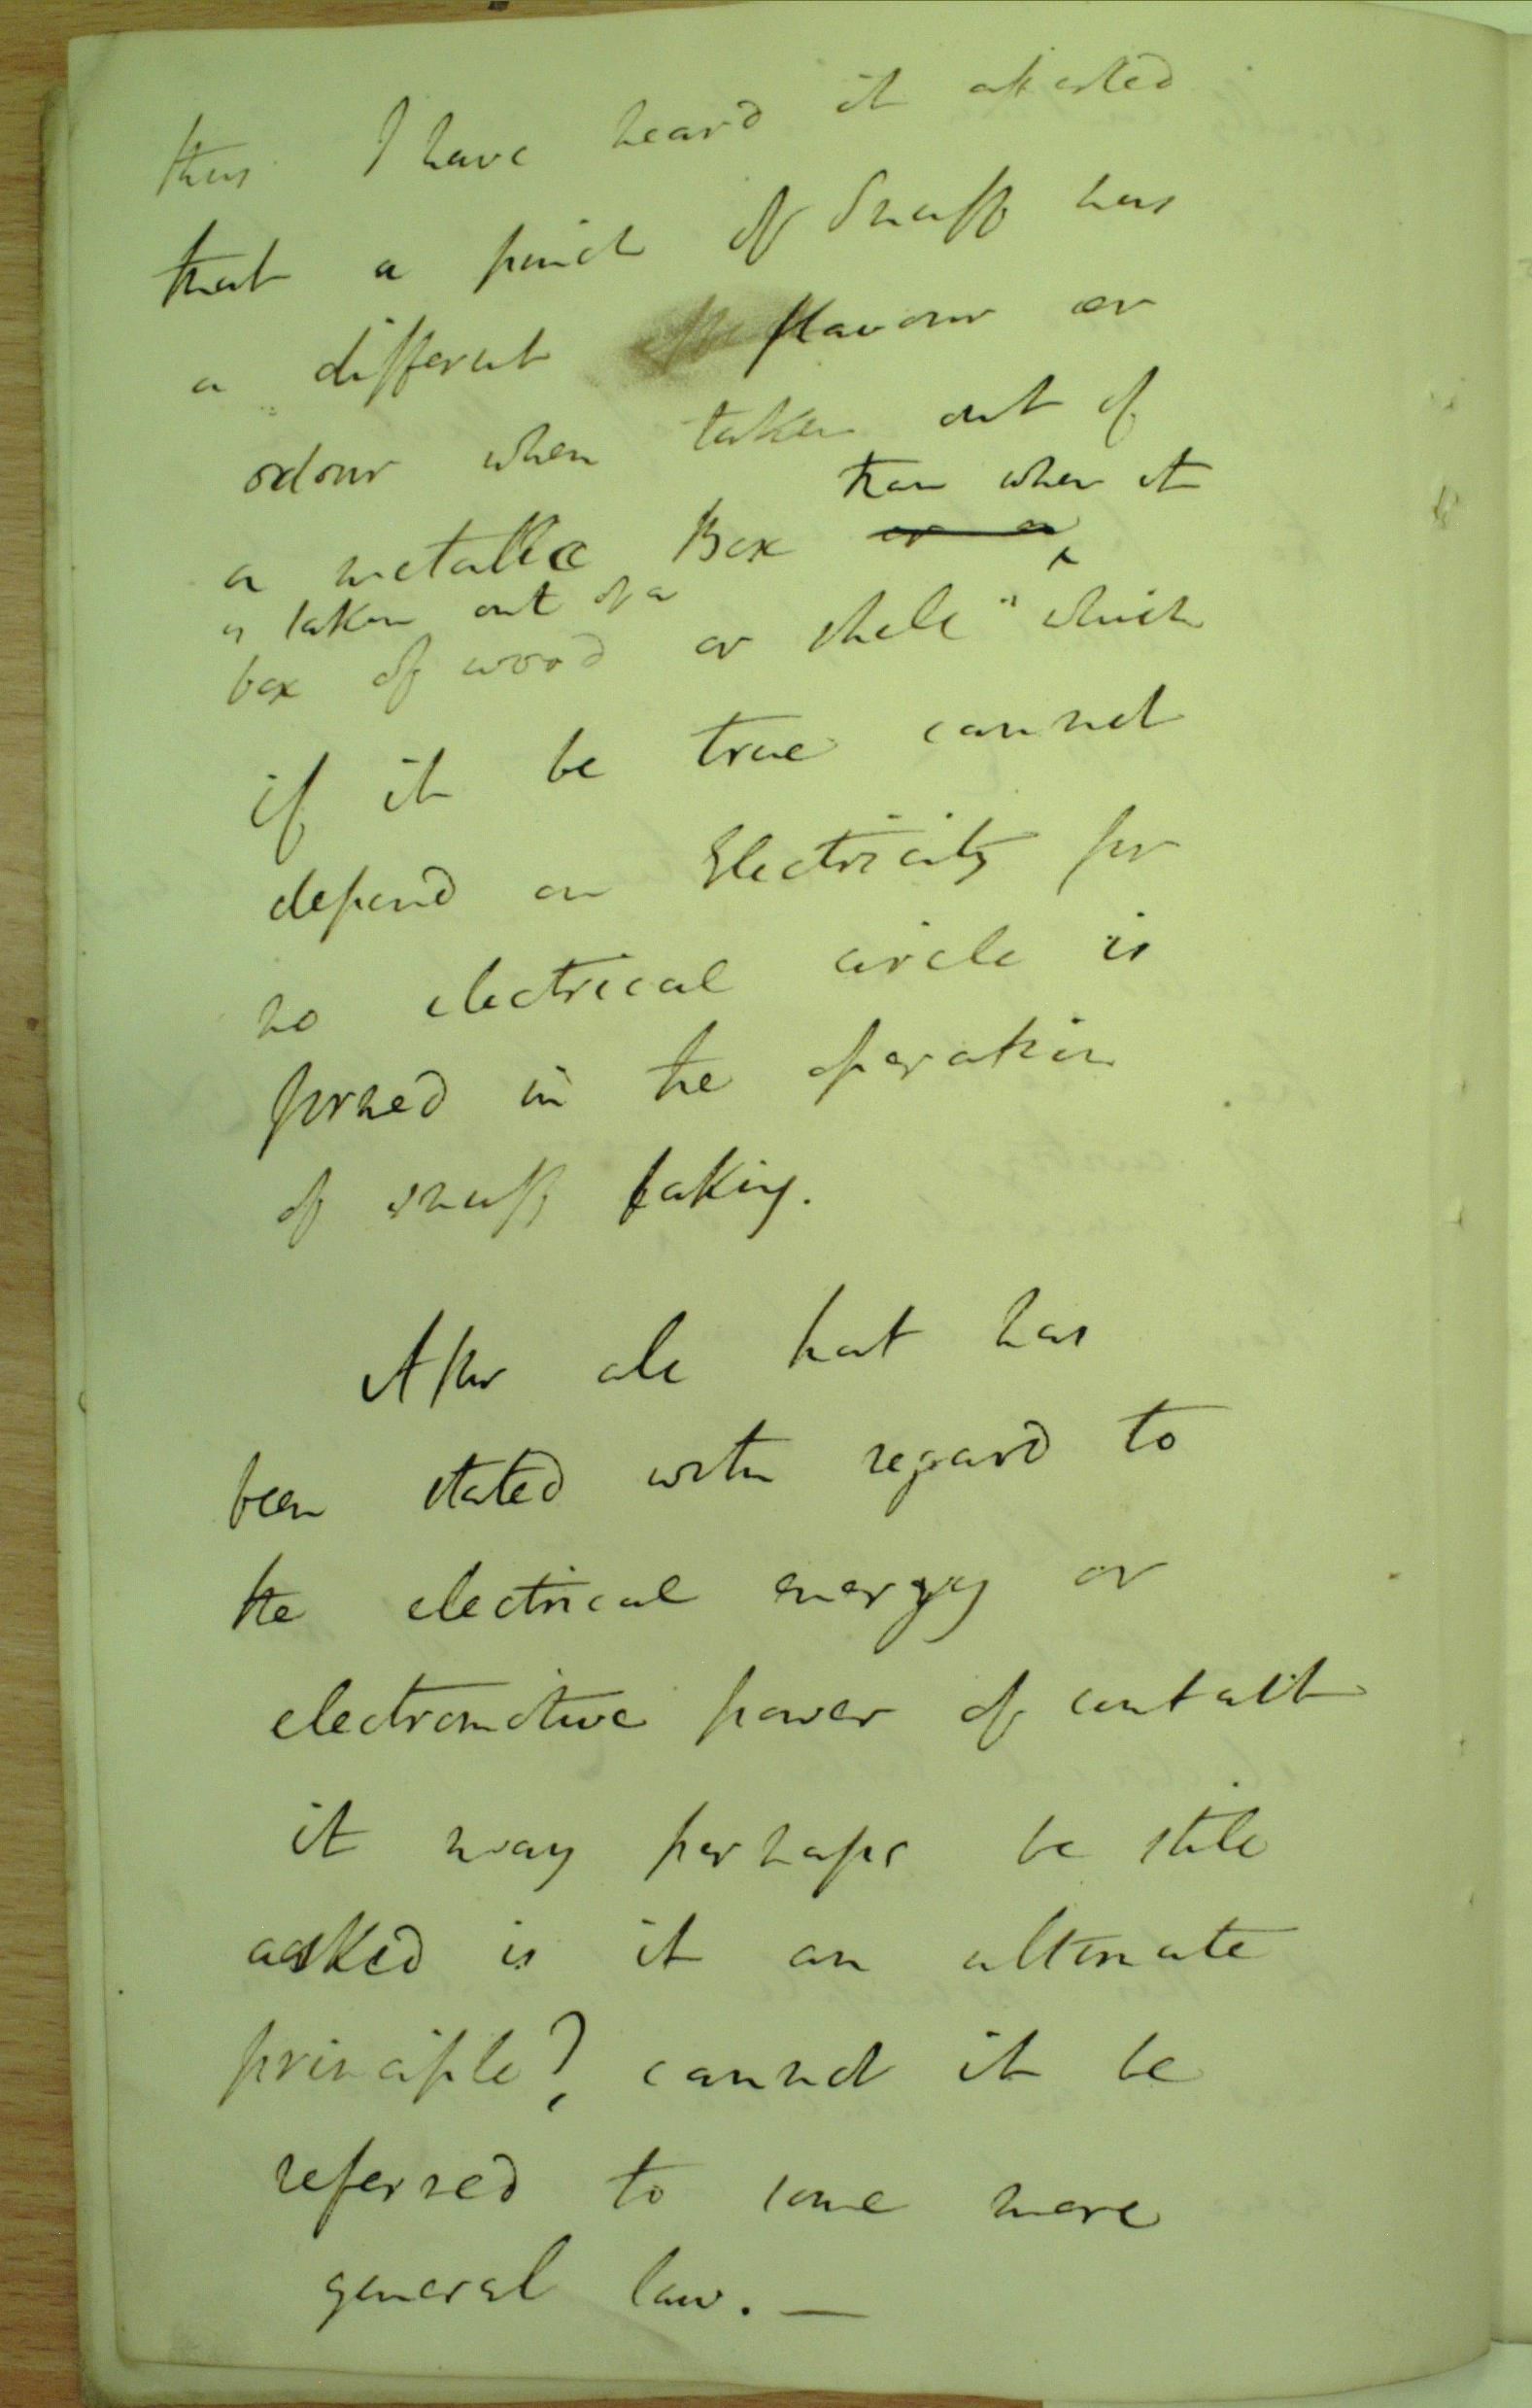 thus I have heard it asserted
that a pinch of Snuff has
a different flavour or
odour when taken out of
than when it
a metallic Box or a
is taken out of a
box of wood or shell" which
if it be true cannot
depend on Electricity for
no electrical circle is
formed in the operation
of snuff taking.
After all that has
been stated with regard to
the electrical energy or
electromotive power of contact
it may perhaps be still
asked is it an ultimate
principle? cannot it be
referred to some more
general law. —